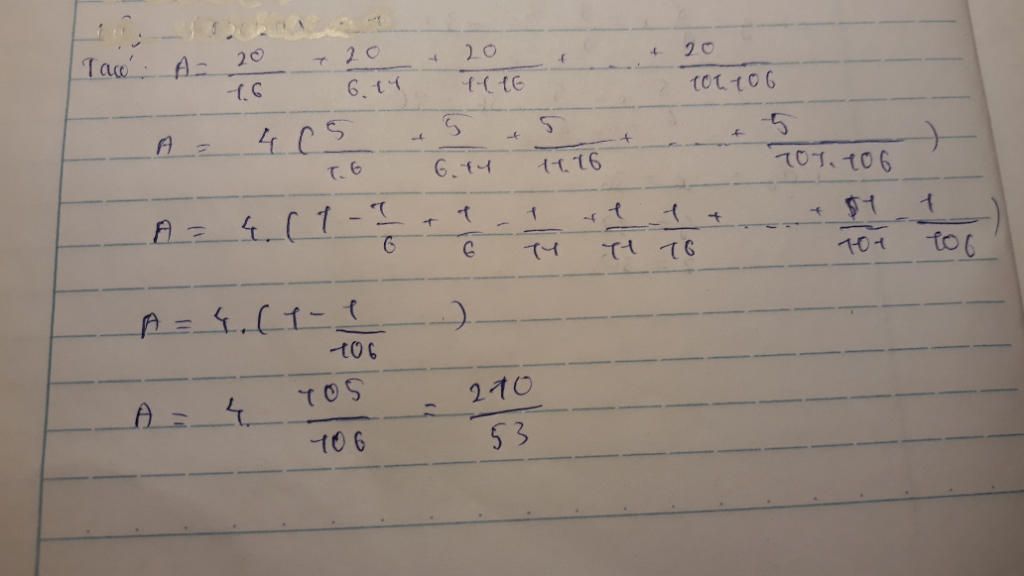 Ta có: A = 20/1.6 + 20/6.11 + 20/11.16 + ..... + 20/101.106
A = 4 ( 5/1.6 + 5/6.11 + 5/11.16 + ..... + 5/101.106 )
A = 4. ( 1 - 1/6 + 1/6 - 1/11 + 1/11 - 1/16 + ..... + 1/101 - 1/106 )
A = 4. ( 1 - 1/106 )
A = 4. 105/106 = 210/53